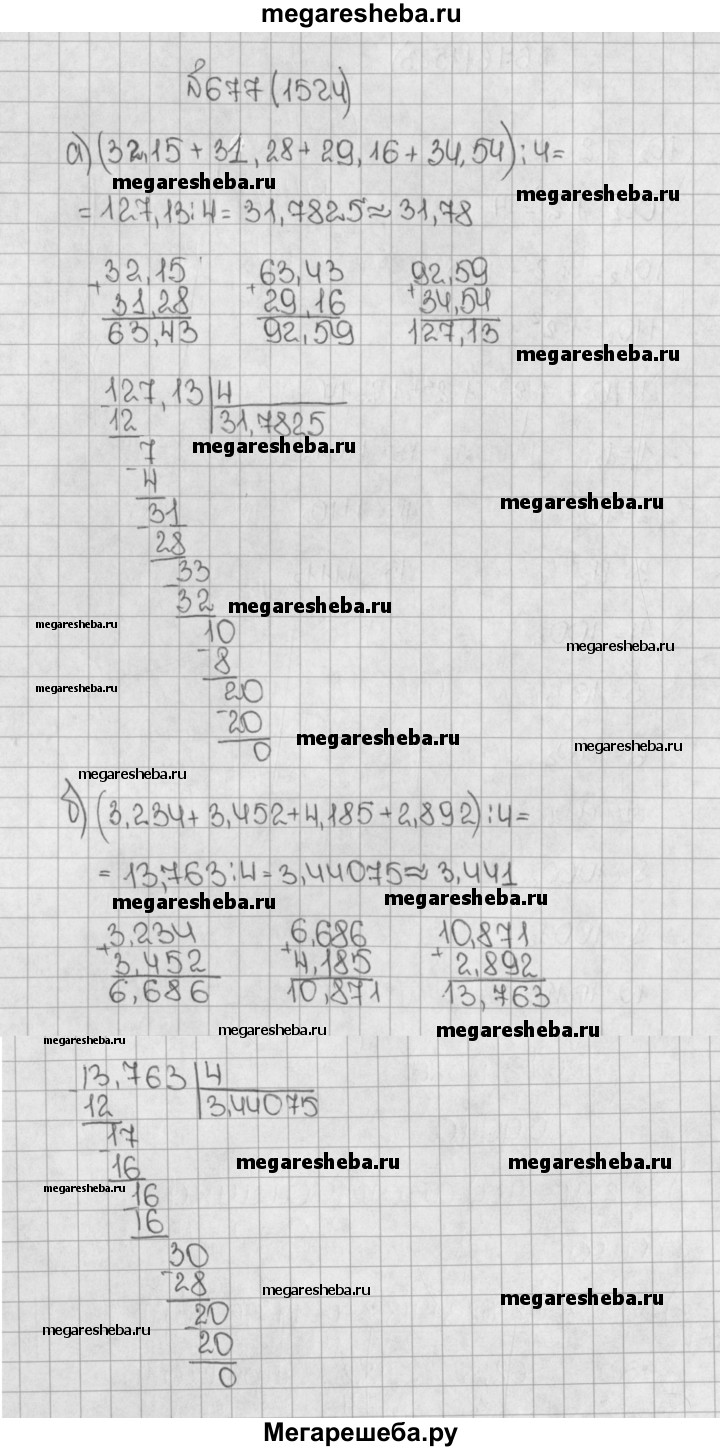 megaresheba.ru
№677(1524)
а) (32,15 + 31,28 + 29,16 + 34,54) : 4 =
megaresheba.ru megaresheba.ru
= 127,13 : 4 = 31,7825 ≈ 31,78
32,15 63,43 92,59
+ + +
31,28 29,16 34,54
63,43 92,59 127,13
megaresheba.ru
127,13 4
- 12 31,7825
megaresheba.ru
7
- 4
megaresheba.ru
31
- 28
33
- 32 megaresheba.ru
megaresheba.ru
10
megaresheba.ru
- 8
megaresheba.ru
20
- 20
megaresheba.ru
megaresheba.ru
0
megaresheba.ru
б) (3,234 + 3,452 + 4,185 + 2,892) : 4 =
= 13,763 : 4 = 3,44075 ≈ 3,441
megaresheba.ru megaresheba.ru
3,234 6,686 10,871
+ + +
3,452 4,185 2,892
6,686 10,871 13,763
megaresheba.ru megaresheba.ru
megaresheba.ru
13,763 4
- 12 3,44075
17
- 16 megaresheba.ru megaresheba.ru
megaresheba.ru
16
- 16
30
- 28 megaresheba.ru megaresheba.ru
20
megaresheba.ru
- 20
0
Мегарешеба.ру